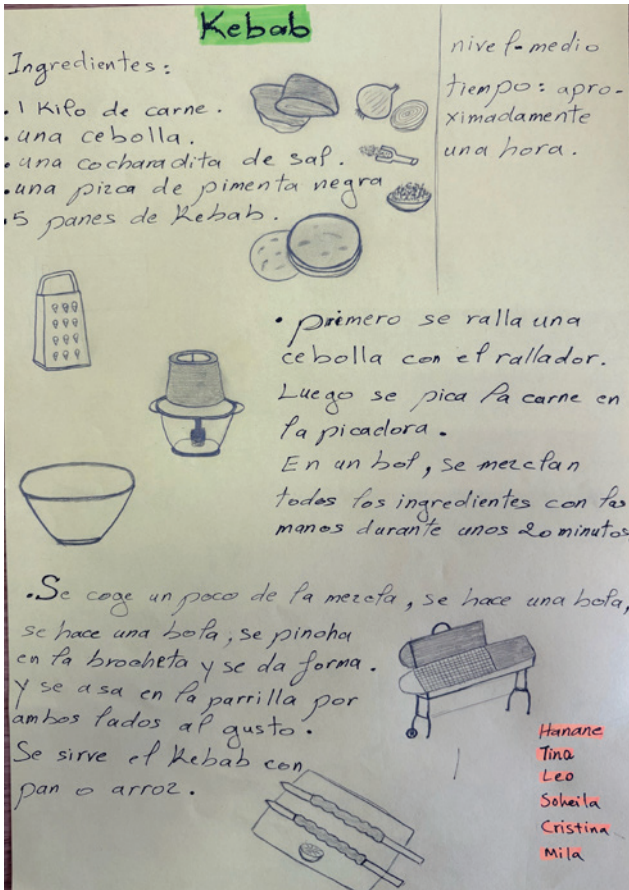 Kebab
Ingredientes:
. 1 Kilo de carne.
. una cebolla.
. una cocharadita de sal.
. una pizca de pimenta negra
. 5 panes de Kebab.
nivel-medio
tiempo: apro-
ximadamente
una hora.
• primero se ralla una
cebolla con el rallador.
Luego se pica la carne en
la picadora.
En un bol, se mezclan
todos los ingredientes con las
manos durante unos 20 minutos
. Se coge un poco de la mezcla, se hace una bola,
se hace una bola, se pincha
en la brocheta y se da forma.
y se asa en la parrilla por
ambos lados al gusto.
Se sirve el Kebab con
pan o arroz.
Hanane
Tina
Leo
Soheila
Cristina
Mila